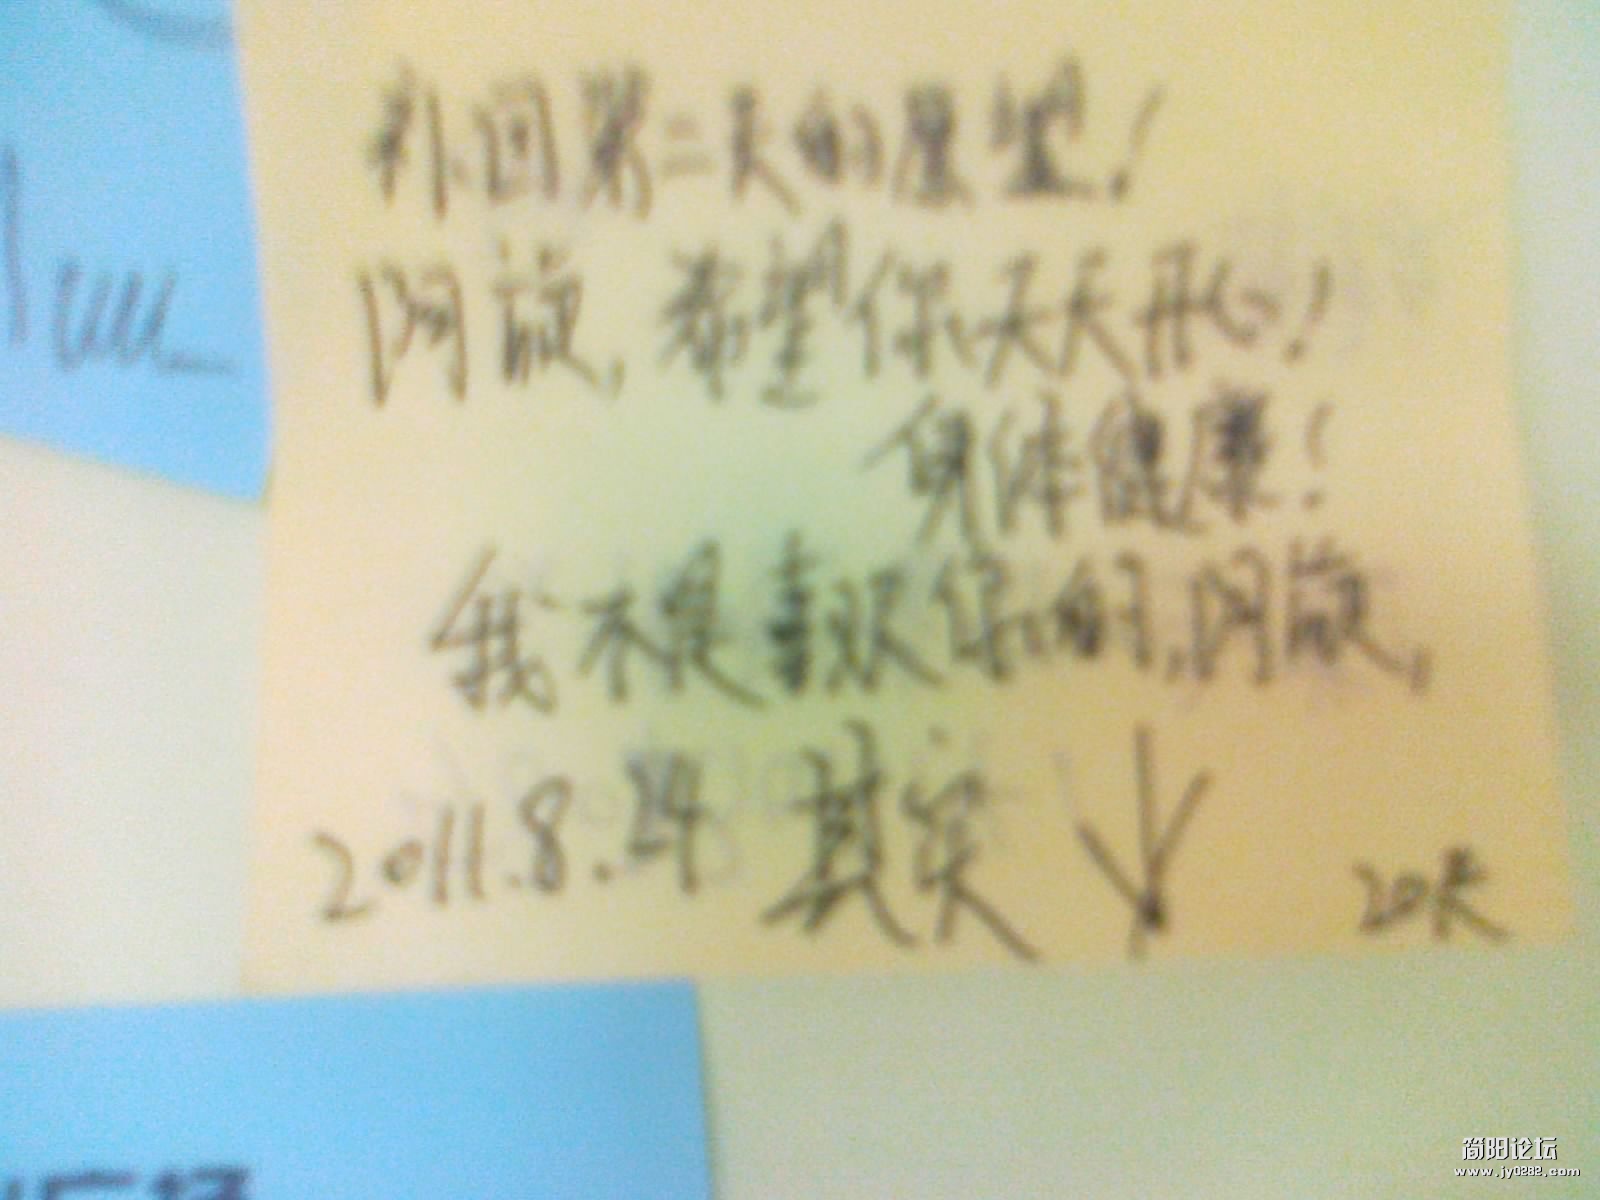 补回第二天的愿望!
阿旋,希望你天天开心!
身体健康!
我不是喜欢你的,阿旋,
2011.8.24 其实
20天
广场
简阳论坛
www.jy0282.com